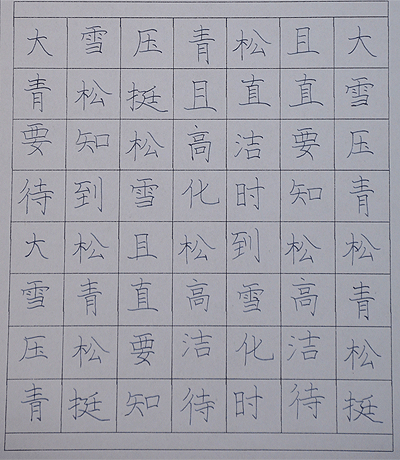 大雪压青松且大
青松挺且直直雪
要知松高洁要压
待到雪化时知青
大松且松到松松
雪青直高雪高青
压松要洁化洁松
青挺知待时待挺